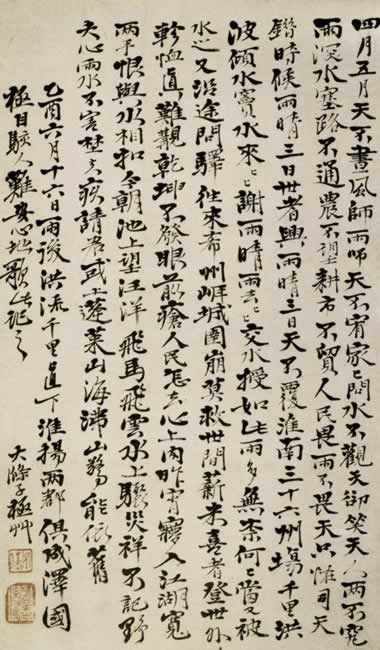 四月五月天不晝風師雨師天不宥家〻問水不觀天卻笑天人兩不究
雨深水塞路不通農不望耕者不貿人民畏雨不畏天只惟司天
錯時候雨晴三日世者興雨晴三日天不覆淮南三十六州場千里洪
波傾水竇水來〻謝雨晴雨去〻交水授如此雨多無柰何〻當又被
水又沿途問驛往來希州城圍崩莫救世間薪米喜者登世外
軫恤真難覯乾坤不發眼前瘡人民怎去心上肉昨宵寢入江湖寬
兩手恨與水相扣今朝池上望汪洋飛馬飛雲水上驟災祥不記野
夫心雨水不害疚請君或上蓬萊山海滯山驚能依舊
乙酉六月十六日雨後洪流千里直下淮揚兩都俱成澤國
極目駭人難安心地歌此記之
大滌子極草